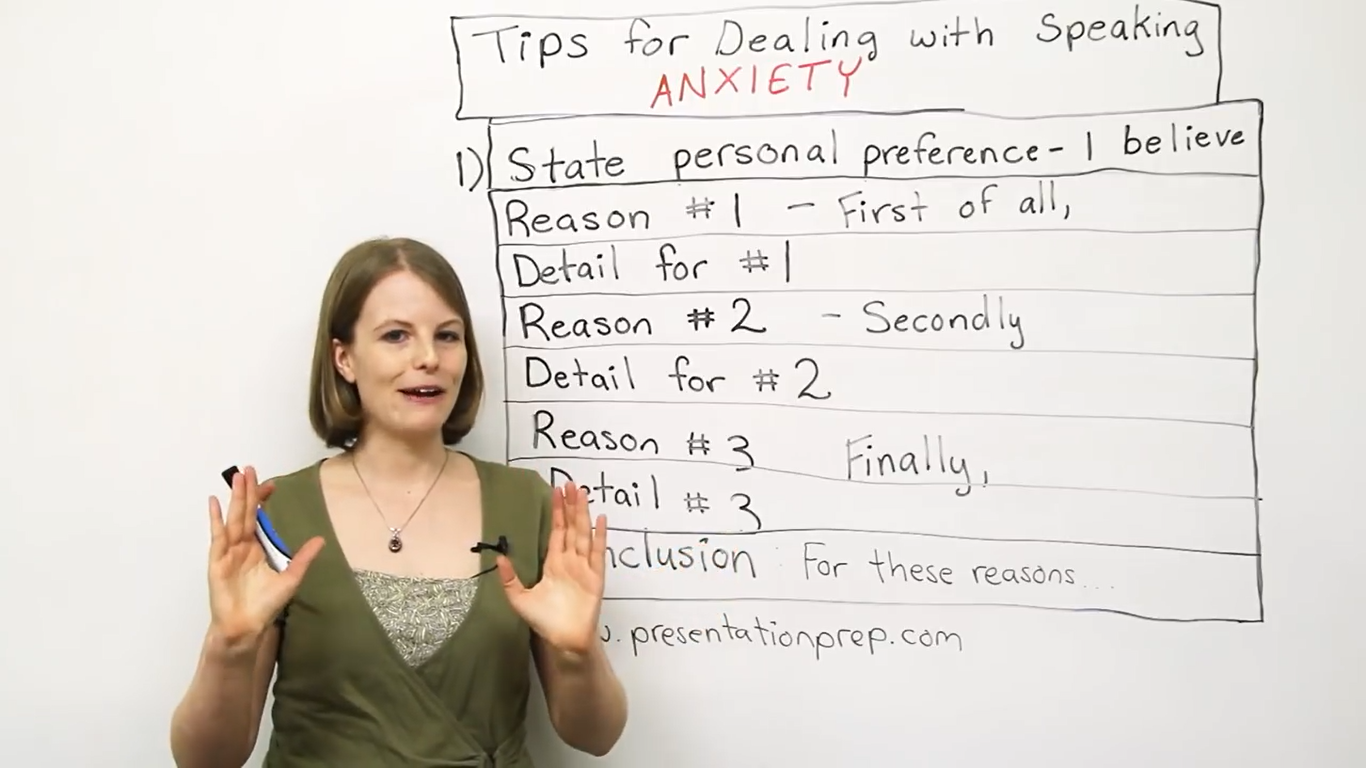 Tips for Dealing with Speaking
ANXIETY
1) State personal preference - I believe
Reason #1 - First of all,
Detail for #1
Reason #2 - Secondly
Detail for #2
Reason #3 Finally,
Detail #3
nclusion : For these reasons...
. presentationprep.com